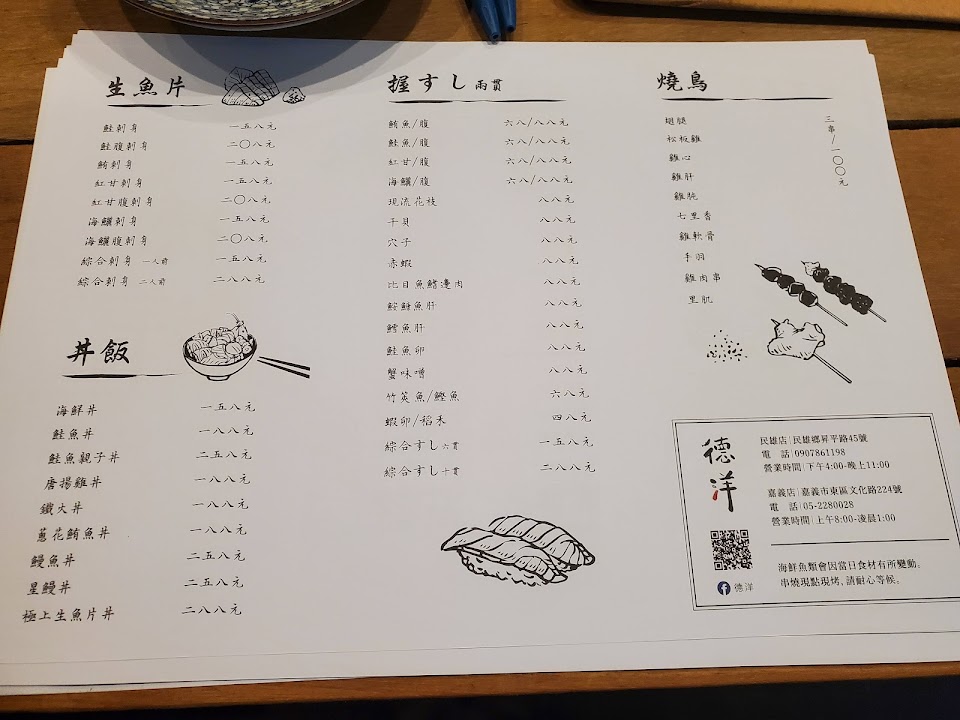 生魚片
鮭刺身 一五八元
鮭腹刺身 二〇八元
鮪刺身 一五八元
紅甘刺身 一五八元
紅甘腹刺身 二〇八元
海鱺刺身 一五八元
海鱺腹刺身 二〇八元
綜合刺身 一人前 一五八元
綜合刺身 二人前 二八八元
丼飯
海鮮丼 一五八元
鮭魚丼 一八八元
鮭魚親子丼 二五八元
唐揚雞丼 一八八元
鐵火丼 一八八元
蔥花鮪魚丼 一八八元
鰻魚丼 二五八元
星鰻丼 二五八元
極上生魚片丼 二八八元
握すし 兩貫
鮪魚/腹 六八/八八元
鮭魚/腹 六八/八八元
紅甘/腹 六八/八八元
海鱺/腹 六八/八八元
現流花枝 八八元
干貝 八八元
穴子 八八元
赤蝦 八八元
比目魚鰭邊肉 八八元
鮟鱇魚肝 八八元
鱈魚肝 八八元
鮭魚卵 八八元
蟹味噌 八八元
竹筴魚/鰹魚 六八元
蝦卵/稻禾 四八元
綜合すし 六貫 一五八元
綜合すし 十貫 二八八元
燒鳥
三串/一〇〇元
翅腿
松板雞
雞心
雞肝
雞胗
七里香
雞軟骨
手羽
雞肉串
里肌
德洋
民雄店|民雄鄉昇平路45號
電 話|0907861198
營業時間|下午4:00-晚上11:00
嘉義店|嘉義市東區文化路224號
電 話|05-2280028
營業時間|上午8:00-凌晨1:00
海鮮魚類會因當日食材有所變動。
串燒現點現烤,請耐心等候。
德洋